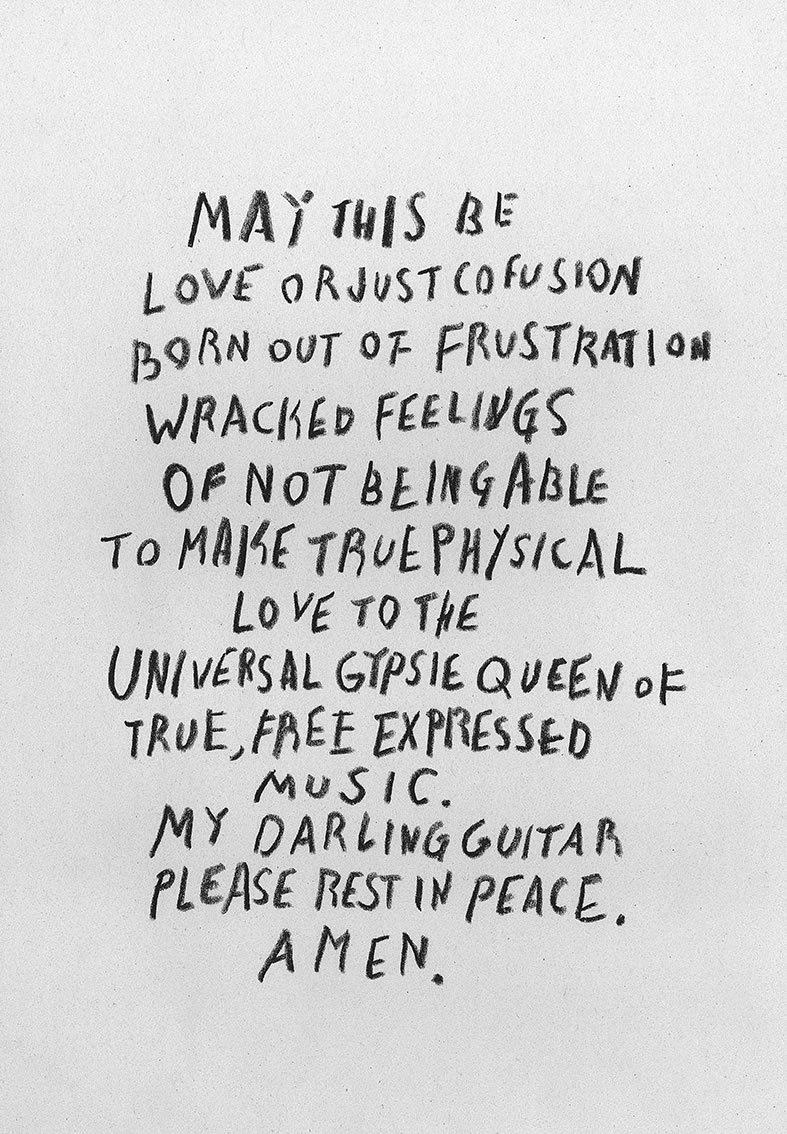 MAY THIS BE
LOVE OR JUST COFUSION
BORN OUT OF FRUSTRATION
WRACKED FEELINGS
OF NOT BEING ABLE
TO MAKE TRUE PHYSICAL
LOVE TO THE
UNIVERSAL GYPSIE QUEEN OF
TRUE, FREE EXPRESSED
MUSIC.
MY DARLING GUITAR
PLEASE REST IN PEACE.
AMEN.